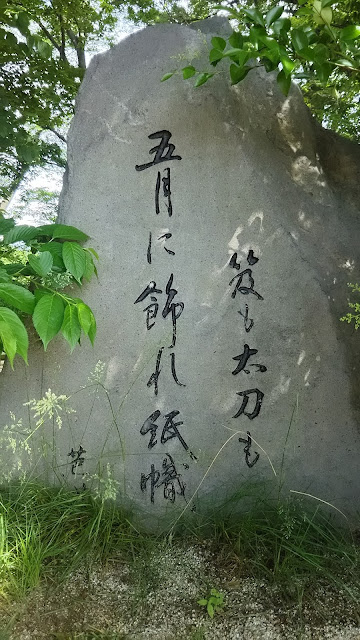 笈も太刀も
五月に飾れ紙幟
芭